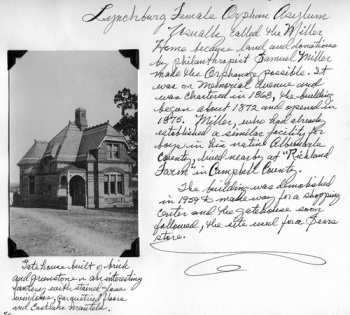 Lynchburg Female Orphan Asylum
Usually called the Miller
Home because land and donations
by philanthropist Samuel Miller
made the Orphanage possible. It
was on Memorial Avenue and
was chartered in 1868, the building
began about 1872 and opened in
1875. Miller, who had already
established a similar facility for
boys in his native Albemarle
County, lived nearby at "Richland
Farm" in Campbell County.
The building was demolished
in 1959 to make way for a shopping
center and the gatehouse soon
followed, the site used for a Sears
store.
Gate house built of brick
and brownstone in an interesting
fantasy with stained glass
windows, parqueted floors
and Eastlake mantels.